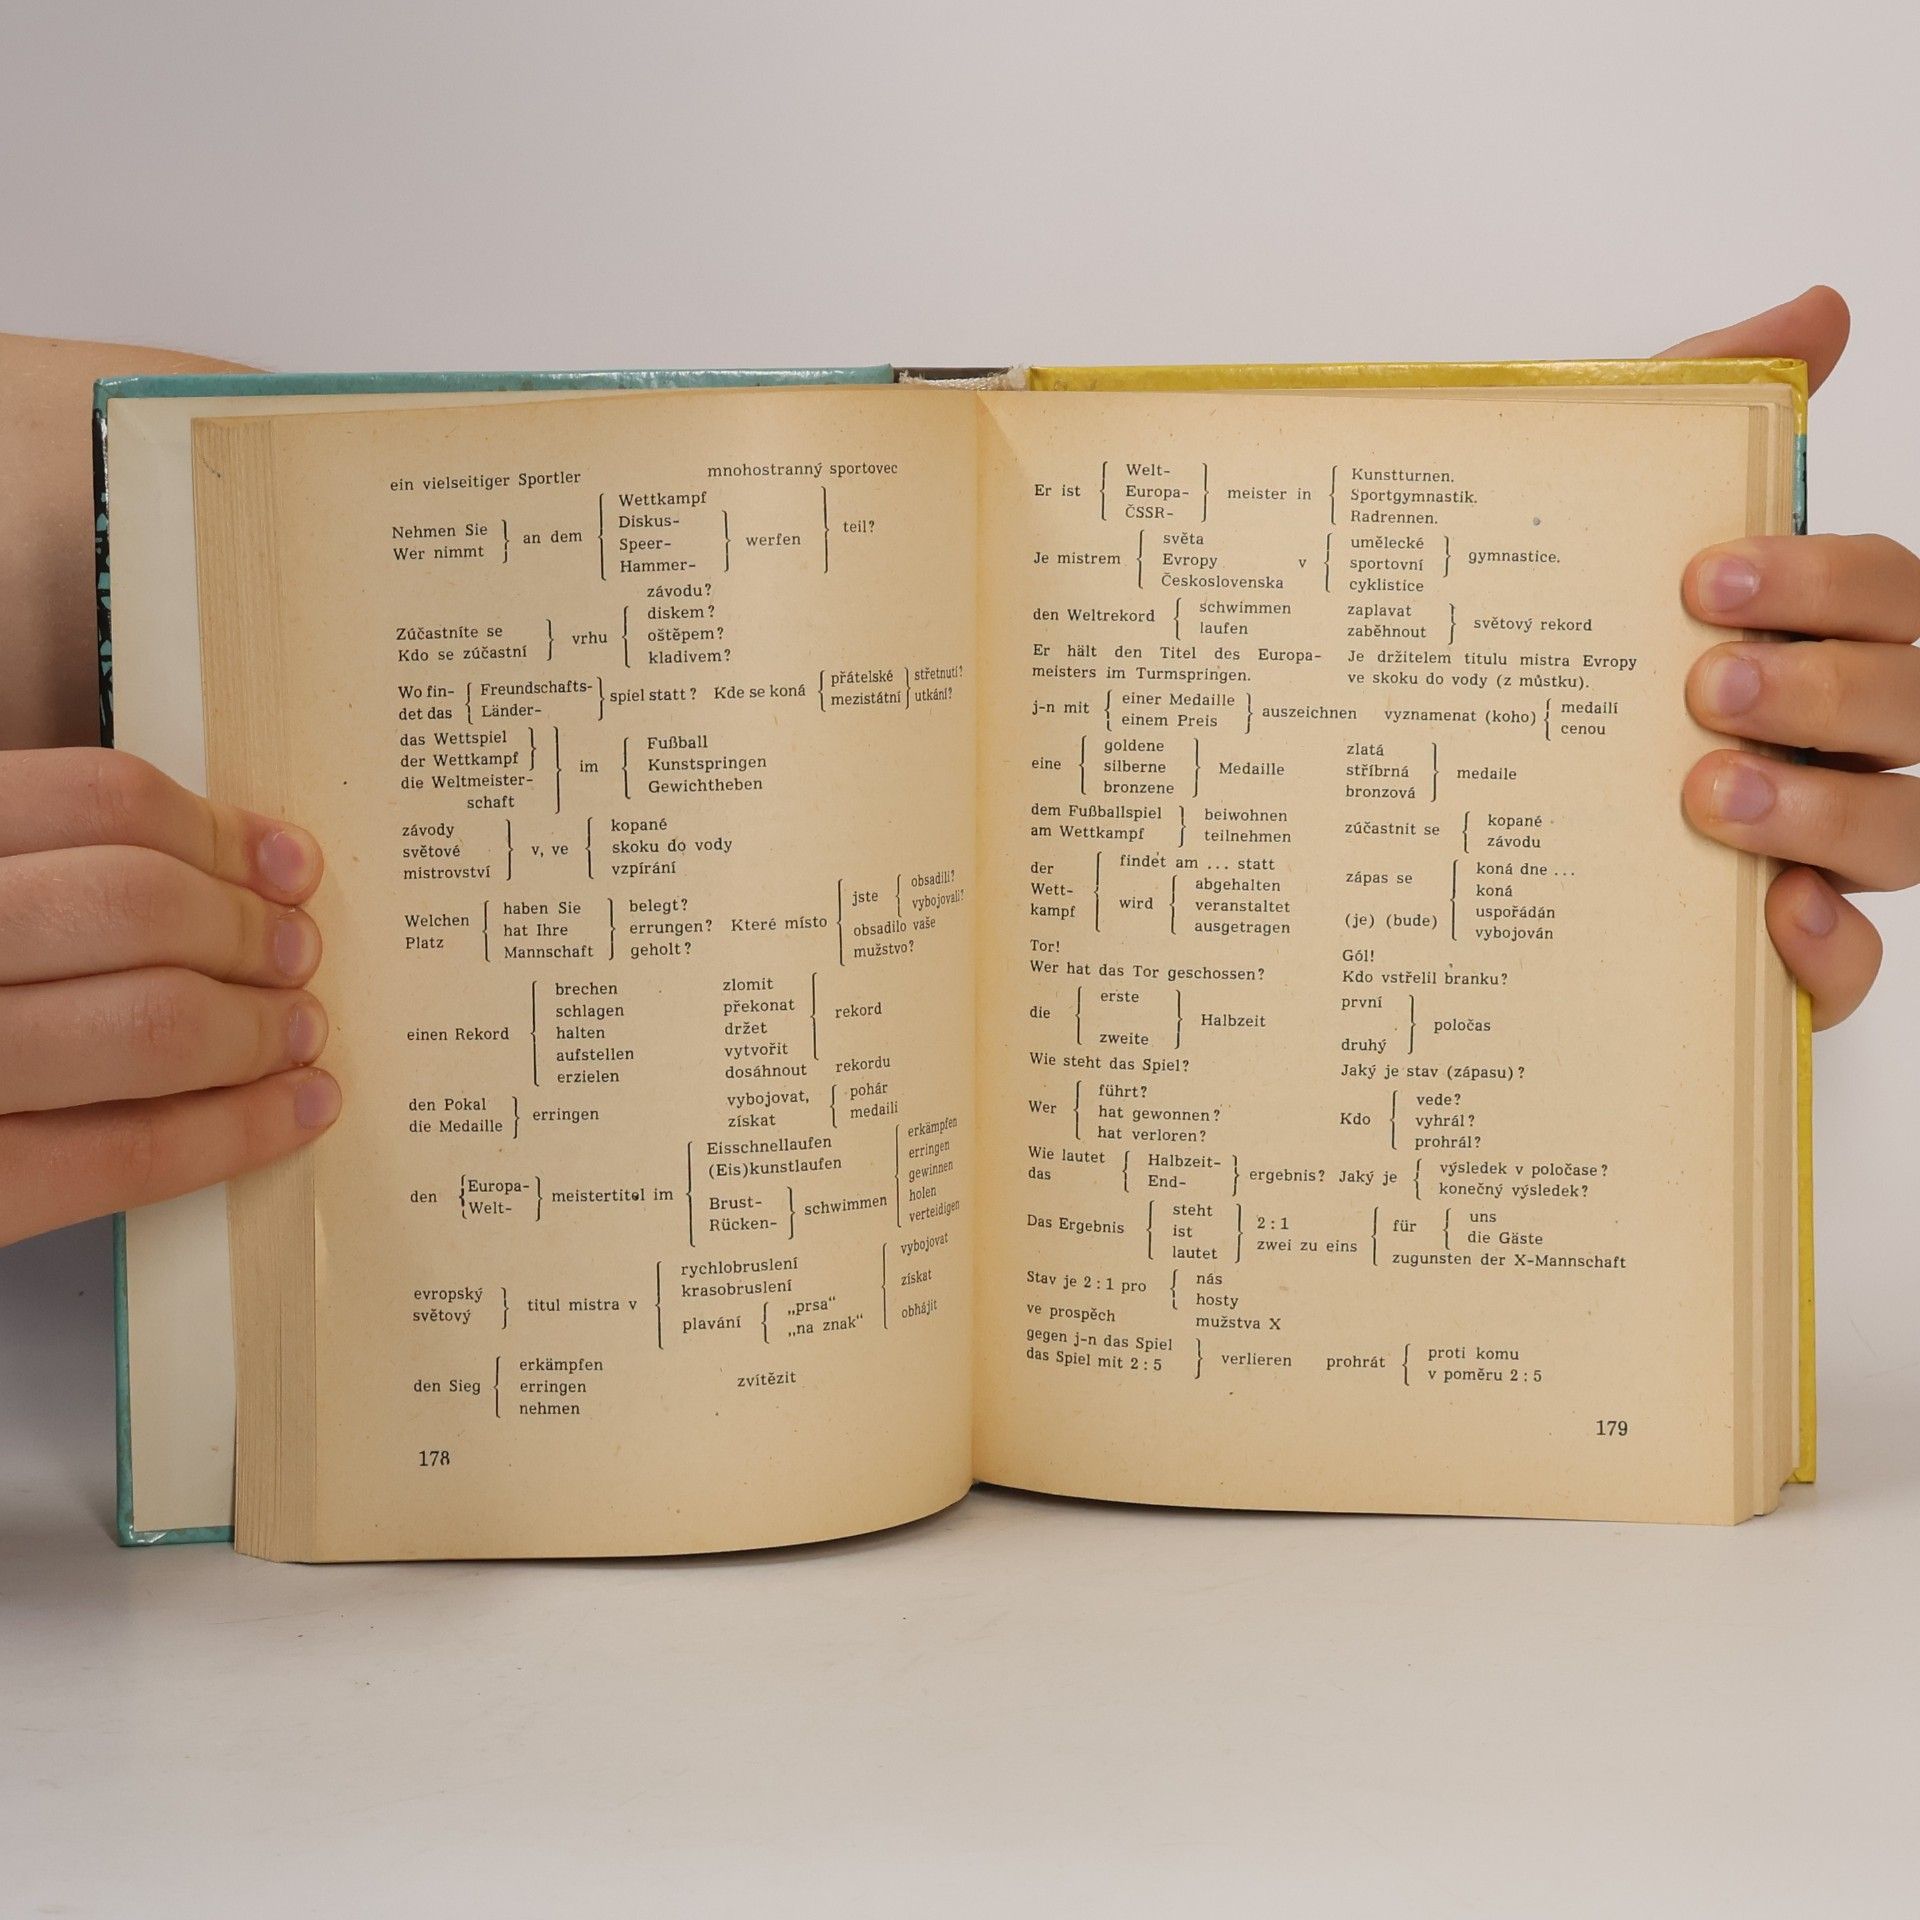 ein vielseitiger Sportler mnohostranný sportovec
Wettkampf
Nehmen Sie Diskus-
an dem Speer- werfen teil?
Wer nimmt Hammer-
závodu?
diskem?
Zúčastníte se vrhu oštěpem?
Kdo se zúčastní kladivem?
Wo fin- Freundschafts- spiel statt? Kde se koná přátelské střetnutí?
det das Länder- mezistátní utkání?
das Wettspiel Fußball
der Wettkampf im Kunstspringen
die Weltmeister- Gewichtheben
schaft
závody kopané
světové v, ve skoku do vody
mistrovství vzpírání
Welchen haben Sie belegt? jste obsadili?
Platz hat Ihre errungen? Které místo vybojovali?
Mannschaft geholt? obsadilo vaše
mužstvo?
brechen zlomit
schlagen překonat
einen Rekord halten držet rekord
aufstellen vytvořit
erzielen dosáhnout rekordu
den Pokal erringen vybojovat, pohár
die Medaille získat medaili
Eisschnellaufen erkämpfen
(Eis)kunstlaufen erringen
den Europa- meistertitel im gewinnen
Welt- Brust- schwimmen holen
Rücken- verteidigen
rychlobruslení vybojovat
evropský krasobruslení získat
světový titul mistra v plavání „prsa“ obhájit
„na znak“
erkämpfen
den Sieg erringen zvítězit
nehmen
178
Welt- Kunstturnen.
Er ist Europa- meister in Sportgymnastik.
ČSSR- Radrennen.
světa umělecké
Je mistrem Evropy v sportovní gymnastice.
Československa cyklistice
den Weltrekord schwimmen zaplavat světový rekord
laufen zaběhnout
Er hält den Titel des Europa- Je držitelem titulu mistra Evropy
meisters im Turmspringen. ve skoku do vody (z můstku).
j-n mit einer Medaille auszeichnen vyznamenat (koho) medailí
einem Preis cenou
goldene zlatá
eine silberne Medaille stříbrná medaile
bronzene bronzová
dem Fußballspiel beiwohnen zúčastnit se kopané
am Wettkampf teilnehmen závodu
der findet am ... statt zápas se koná dne ...
Wett- abgehalten koná
kampf wird veranstaltet (je) (bude) uspořádán
ausgetragen vybojován
Tor! Gól!
Wer hat das Tor geschossen? Kdo vstřelil branku?
die erste Halbzeit první poločas
zweite druhý
Wie steht das Spiel? Jaký je stav (zápasu)?
führt? vede?
Wer hat gewonnen? Kdo vyhrál?
hat verloren? prohrál?
Wie lautet Halbzeit- ergebnis? Jaký je výsledek v poločase?
das End- konečný výsledek?
steht 2 : 1 uns
Das Ergebnis ist zwei zu eins für die Gäste
lautet zugunsten der X-Mannschaft
Stav je 2 : 1 pro nás
hosty
ve prospěch mužstva X
gegen j-n das Spiel verlieren prohrát proti komu
das Spiel mit 2 : 5 v poměru 2 : 5
179